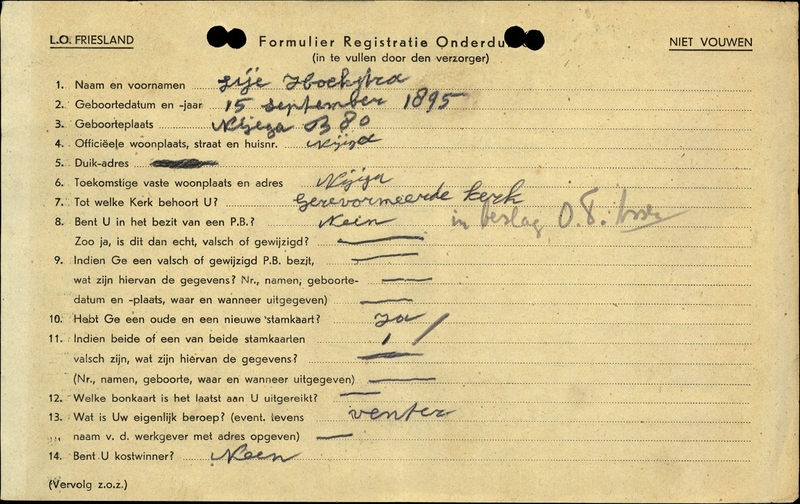 L.O. FRIESLAND
Formulier Registratie Onderdu
NIET VOUWEN
(in te vullen door den verzorger)
1. Naam en voornamen Sije Hoekstra
2. Geboortedatum en -jaar 15 september 1895
3. Geboorteplaats Nijega B 80
4. Officiëele woonplaats, straat en huisnr. Nijega
5. Duik-adres
6. Toekomstige vaste woonplaats en adres Nijega
7. Tot welke Kerk behoort U? Gerevormeerde kerk
8. Bent U in het bezit van een P.B.? Neen in beslag
Zoo ja, is dit dan echt, valsch of gewijzigd? —
9. Indien Ge een valsch of gewijzigd P.B. bezit, —
wat zijn hiervan de gegevens? Nr., namen, geboorte- —
datum en -plaats, waar en wanneer uitgegeven) —
10. Hebt Ge een oude en een nieuwe stamkaart? Ja
11. Indien beide of een van beide stamkaarten
valsch zijn, wat zijn hiervan de gegevens? —
(Nr., namen, geboorte, waar en wanneer uitgegeven) —
12. Welke bonkaart is het laatst aan U uitgereikt? —
13. Wat is Uw eigenlijk beroep? (event. tevens venter
naam v. d. werkgever met adres opgeven) —
14. Bent U kostwinner? Neen
(Vervolg z.o.z.)